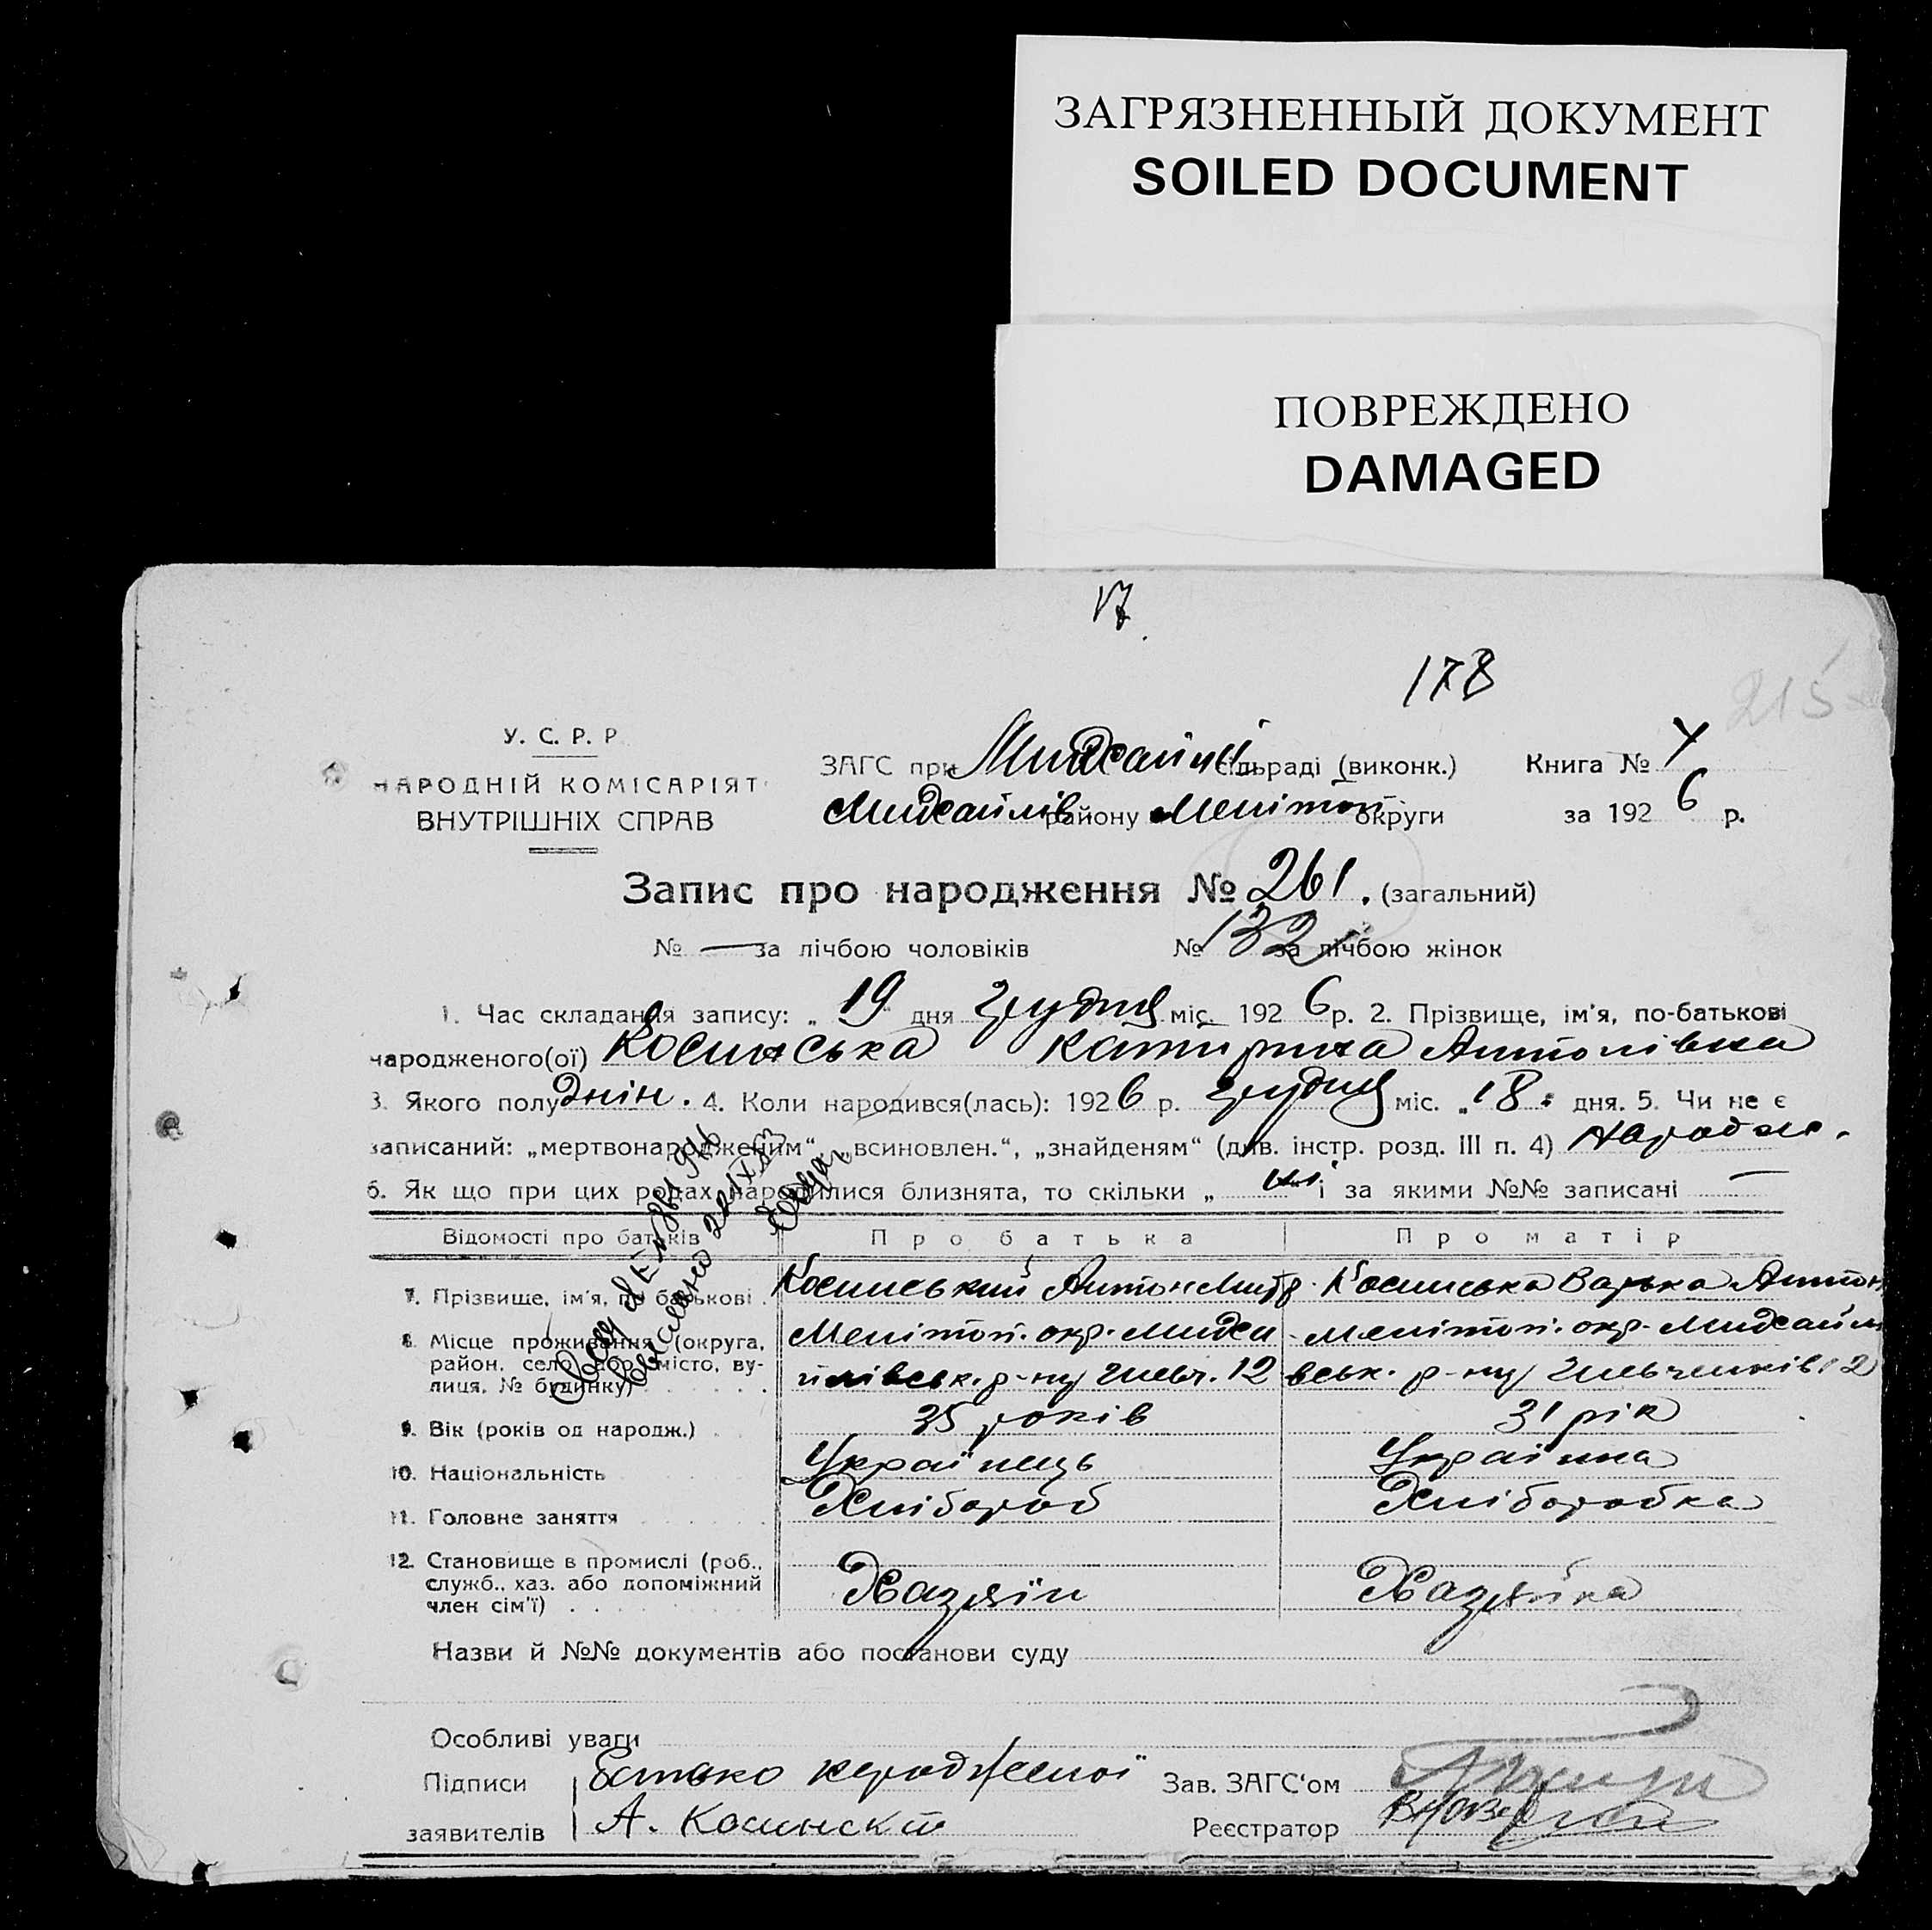 ЗАГРЯЗНЕННЫЙ ДОКУМЕНТ
SOILED DOCUMENT
ПОВРЕЖДЕНО
DAMAGED
17
178
215
У. С. Р. Р
НАРОДНІЙ КОМІСАРІЯТ
ВНУТРІШНІХ СПРАВ
ЗАГС при Михайлі сільраді (виконк.) Книга № У
Михайлів району Мелітоп. округи за 1926 р.
Запис про народження № 261. (загальний)
№ — за лічбою чоловіків № 132 за лічбою жінок
1. Час складання запису: „19" дня грудня міс. 1926 р. 2. Прізвище, ім'я, по-батькові
народженого(ої) Косинська Катирина Антонівна
3. Якого полу жін. 4. Коли народився(лась): 1926 р. грудня міс. „18" дня. 5. Чи не є
записаний: „мертвонародженим“, „всиновлен.“, „знайденям“ (див. інстр. розд. III п. 4) народж.
6. Як що при цих родах народилися близнята, то скільки „ ні і за якими №№ записані —
Відомості про батьків Про батька Про матір
7. Прізвище, ім'я, по батькові . Косинський Антон Митр. Косинська Варька Антон
8. Місце проживання (округа, район, село, або місто, вулиця, № будинку) Мелітоп. окр. Михайлівськ. р-ну Шевч. 12 Мелітоп. окр. Михайлівськ. р-ну Шевченків 12
9. Вік (років од народж.) 35 років 31 рік
10. Національність Українець Українка
11. Головне заняття Хлібороб Хліборобка
12. Становище в промислі (роб., служб., хаз. або допоміжний член сім'ї) Хазяїн Хазяйка
Назви й №№ документів або постанови суду
Особливі уваги
Підписи Батько народженої Зав. ЗАГС'ом
заявителів А. Косински Реєстратор